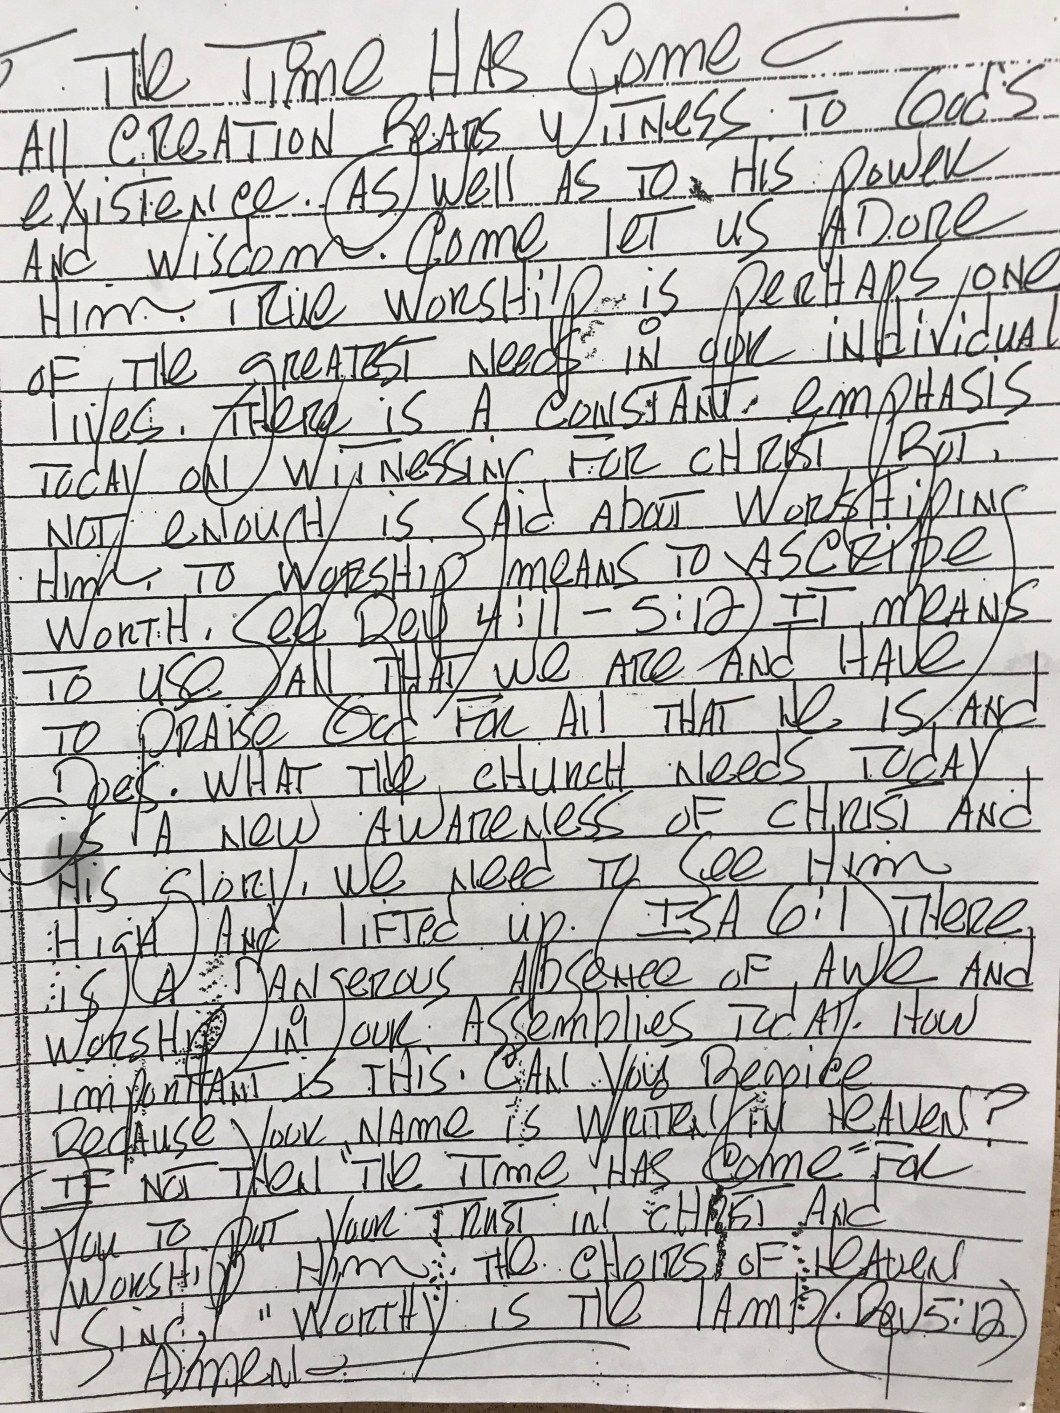 The Time Has Come
All CREATION BeARS WITNess TO God's
existence. (AS) Well AS TO HIS power
AND Wisdom. Come let us ADORE
Him. TRUE WORSHIP is perHAPS one
OF THe greATEST Needs IN our individual
lives. THere is A CONSTANT emPHASIS
TODAY ON WITNessING FOR CHRIST BUT,
NOT enough is SAid About WorshipING
Him. TO WORSHIP meANS TO ASCRibe
WORTH. (See Rev 4:11 - 5:12) IT meANS
TO use All THAT we ARE AND HAVe
TO PRAISe God FOR All THAT He IS AND
Does. WHAT THe CHURCH Needs TODAY,
is A New AWAReNess OF CHRIST AND
His glory. We Need TO See Him
HigH AND lifTed up. (ISA 6:1) THERE
is A DANgerous AbseNce OF AWe AND
WORSHIP IN our Assemblies TODAY. How
imporTANT is THIS. CAN You Rejoice
BecAUSe Your NAMe is WRITTEN IN HeAVeN?
IF NOT THeN "THe Time HAS Come" FOR
You TO PUT Your TRUST IN CHRIST AND
WORSHIP Him. THe CHOIRS OF HeAVeN
SING, "WORTHY IS THe lAmb. (Rev 5:12)
AmeN